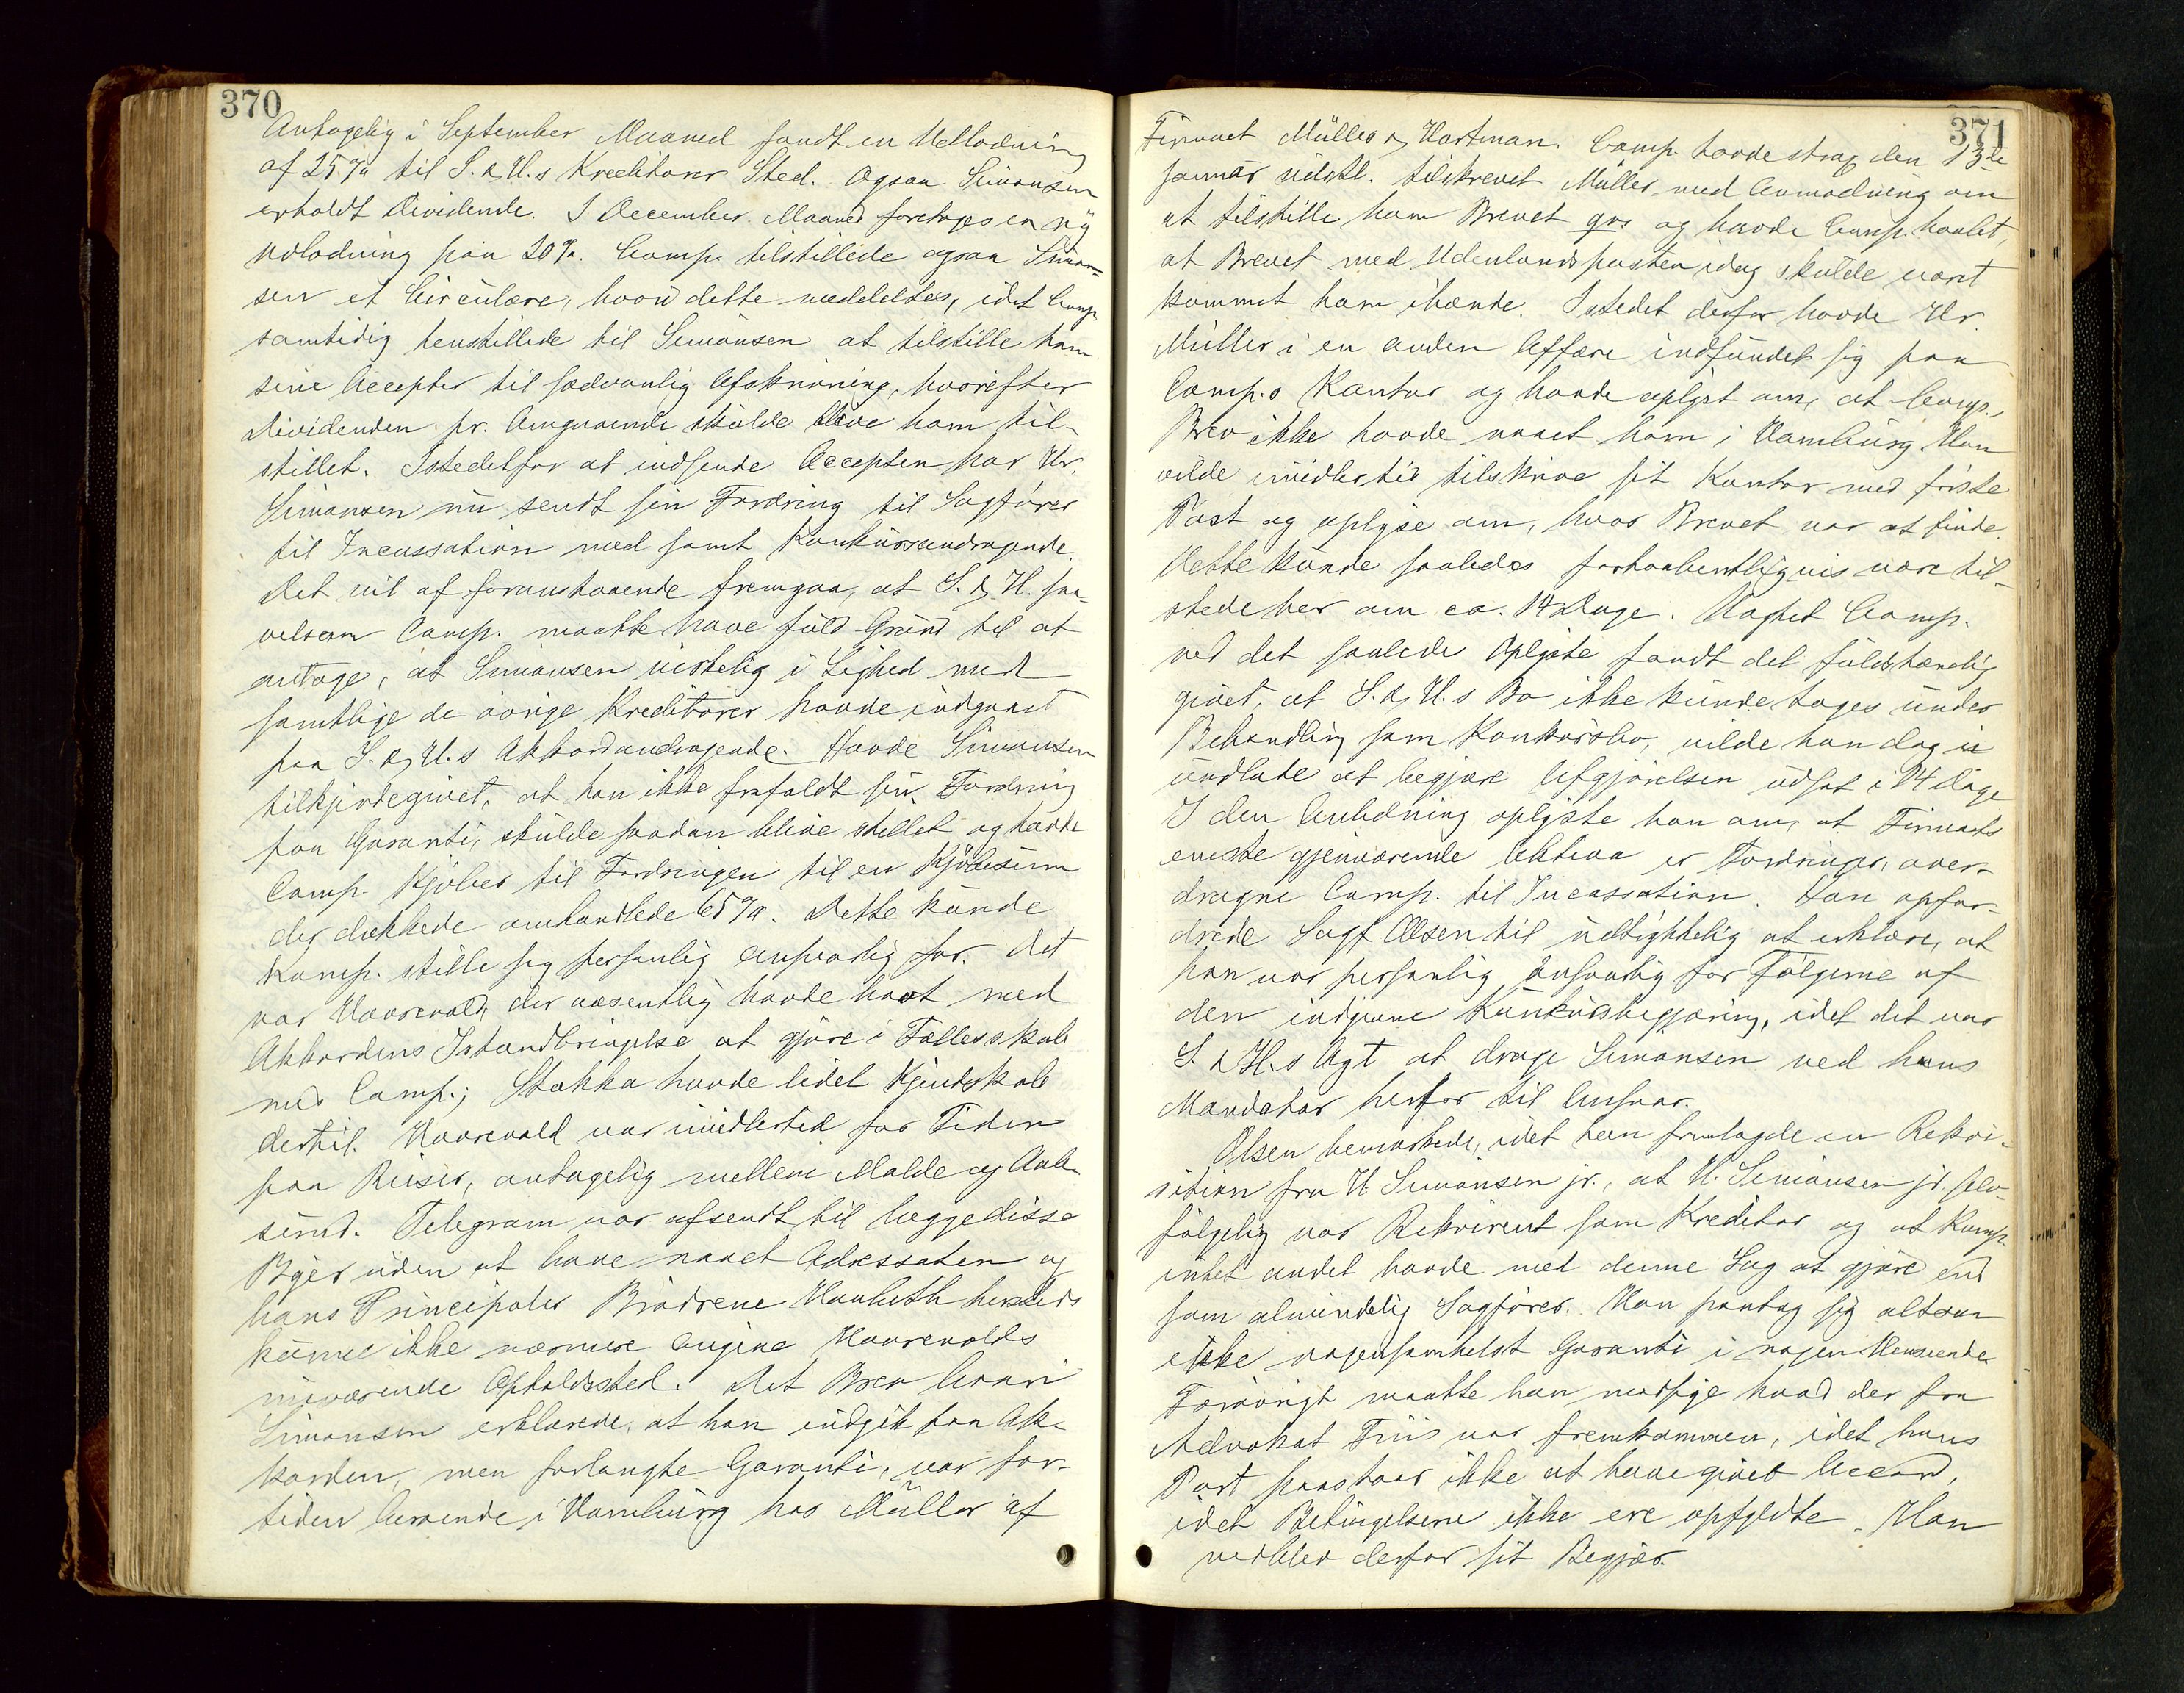 370
Antagelig i September Maaned fandt en Udlodning
af 25% til S. & H.s Kreditorer Sted. Ogsaa Simonsen
erholdt Dividende. I December Maaned foretoges en ny
Udlodning paa 20%. Comp. tilstillede ogsaa Simon-
sen et Circulære, hvori dette meddeltes, idet Comp.
samtidig henstillede til Simonsen at tilstille ham
sine Accepter til sædvanlig Afskrivning, hvorefter
Dividenden pr. Omgaaende skulde blive ham til-
stillet. Istedetfor at indsende Accepten har Hr.
Simonsen nu sendt sin Fordring til Sagfører
til Incassation med samt Konkursandragende.
Det vil af foranstaaende fremgaa, at S. & H. saa-
velsom Comp. maatte have fuld Grund til at
antage, at Simonsen virkelig i Lighed med
samtlige de øvrige Kreditorer havde indgaaet
paa S. & H.s Akkordandragende. Havde Simonsen
tilkjendegivet, at han ikke frafaldt sin Fordring
paa Garanti, skulde saadan blive stillet og havde
Comp. Kjøber til Fordringen til en Kjøbesum
der dækkede omhandlede 65%. Dette kunde
Komp. stille sig personlig ansvarlig for. Det
var Haarevold, der væsentlig havde havt med
Akkordens Istandbringelse at gjøre i Fællesskab
med Comp.; Stokka havde lidet Kjendskab
dertil. Haarevold var imidlertid for Tiden
paa Reiser, antagelig mellem Molde og Aale-
sund. Telegram var afsendt til begge disse
Byer uden at have naaet Adressaten og
hans Principaler Brødrene Hauluth hersteds
kunne ikke nærmere angive Haarevolds
nuværende Opholdssted. Det Brev hvori
Simonsen erklærede, at han indgik paa Ak-
korden, men forlangte Garanti, var for-
tiden beroende i Hamburg hos Müller af
371
Firmaet Müller & Hartman. Comp. havde strax den 13de
Januar sidstl. tilskrevet Müller med Anmodning om
at tilstille ham Brevet qvs og havde Comp. haabet,
at Brevet med Udenlandsposten idag skulde være
kommet ham ihænde. Istedet derfor havde Hr.
Müller i en anden Affære indfundet sig paa
Comp.s Kontor og havde oplyst om, at Comp.s
Brev ikke havde naaet ham i Hamburg. Han
vilde imidlertid tilskrive sit Kontor med første
Post og oplyse om, hvor Brevet var at finde.
Dette kunde saaledes forhaabentligvis være til-
stede her om ca. 14 Dage. Uagtet Comp.
ved det saaledes Oplyste fandt det fuldstændig
givet, at S. & H.s Bo ikke kunde tages under
Behandling som Konkursbo, vilde han dog ei
undlade at begjære Afgjørelsen udsat i 14 Dage
I den Anledning oplyste han om, at Firmaets
eneste gjenværende Aktiva er Fordringer, over-
dragne Comp. til Incassation. Han opfor-
drede Sagf. Olsen til udtrykkelig at erklære, at
han var personlig ansvarlig for Følgerne af
den indgivne Konkursbegjæring, idet det var
S. & H.s Agt at drage Simonsen ved hans
Mandatar herfor til Ansvar.
Olsen bemærkede, idet han fremlagde en Rekvi-
sition fra H. Simonsen jr., at H. Simonsen jr. selv-
følgelig var Rekvirent som Kreditor og at Komp.
intet andet havde med denne Sag at gjøre end
som almindelig Sagfører. Han paatog sig altsaa
ikke nogensomhelst Garanti i nogen Henseende
Forøvrigt maatte han modsige hvad der fra
Advokat Friis var fremkommen, idet hans
Part paastaar ikke at have givet Accord,
idet Betingelserne ikke ere opfyldte. Han
vedblev derfor sit Begjær.